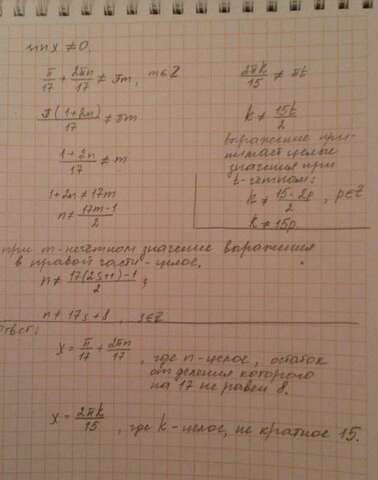 sin x ≠ 0,
π/17 + 2πn/17 ≠ πm, m∈Z
π(1+2n)/17 ≠ πm
1+2n/17 ≠ m
1+2n ≠ 17m
n ≠ 17m-1/2
2πk/15 ≠ πt
k ≠ 15t/2
выражение при-
нимает целые
значения при
t-четном:
k ≠ 15·2p/2, p∈Z
k ≠ 15p
при m-нечетном значение выражения
в правой части - целое.
n ≠ 17(2s+1)-1/2,
n ≠ 17s+8, s∈Z
Ответ:
x = π/17 + 2πn/17, где n-целое, остаток
от деления которого
на 17 не равен 8.
x = 2πk/15, где k-целое, не кратное 15.